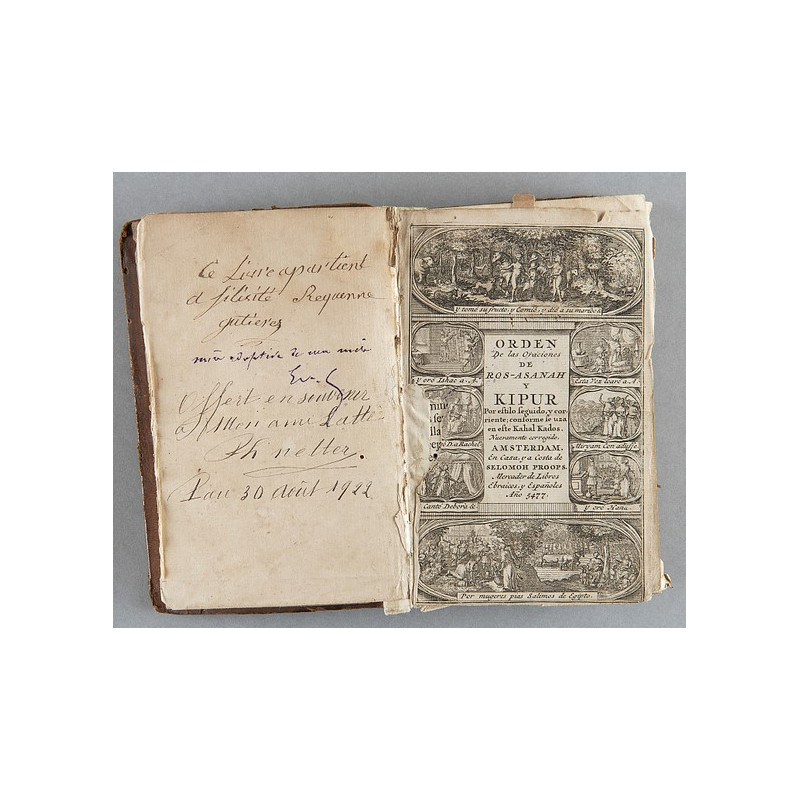 Ce Livre apartient
a félisité Requenne
gutieres
mère adoptive de ma mère
Offert en souvenir
A Mon ami
Pau 30 août 1922
Y tomo su fructo, y Comió, y dió a su marido
ORDEN
De las Oraciones
DE
ROS-ASANAH
Y
KIPUR
Por estilo seguido, y cor-
riente; conforme se uza
en este Kahal Kados.
Nuevamente corregido.
AMSTERDAM.
En Casa, y a Costa de
SELOMOH PROOPS.
Mercader de Libros
Ebraicos, y Españoles
Año 5477.
Y oró Ishac a. A.
Rachel
Canto Debora &
Esta Vez loaré a A.
Miryam Con adusse.
Y oró Hana.
Por mugeres pias Salimos de Egipto.